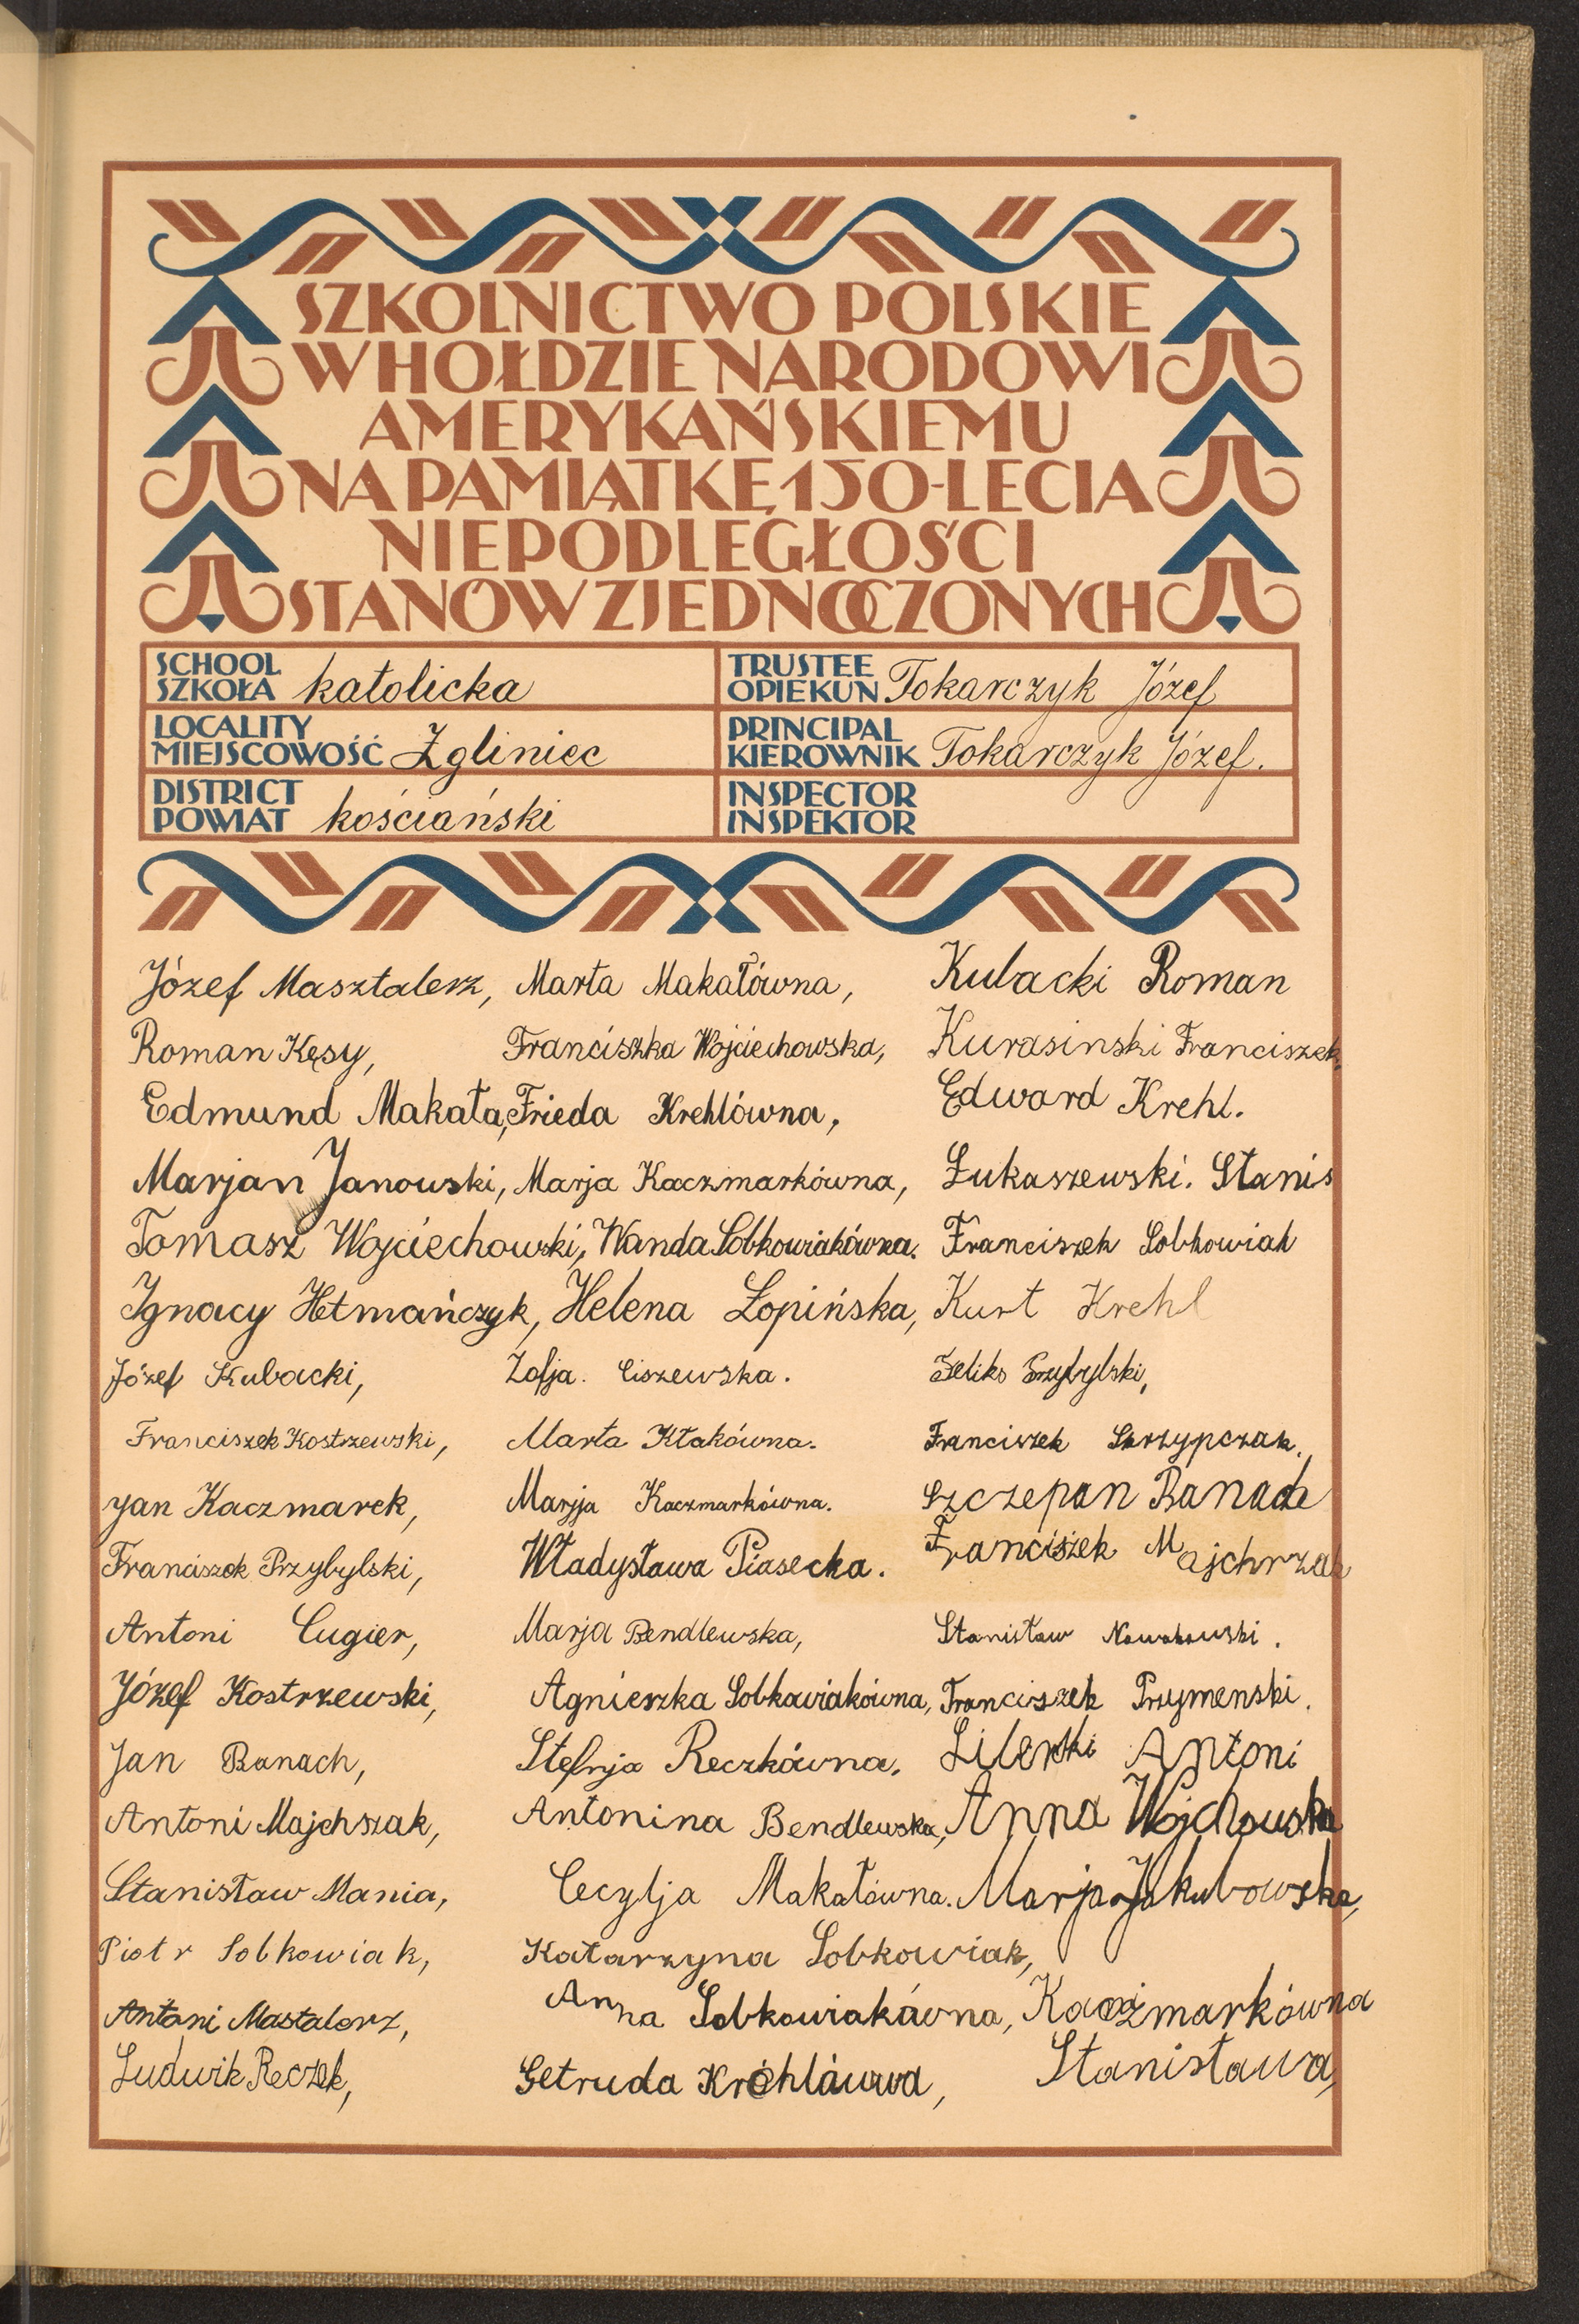 SZKOLNICTWO POLSKIE
W HOŁDZIE NARODOWI
AMERYKAŃSKIEMU
NA PAMIĄTKĘ 150-LECIA
NIEPODLEGŁOŚCI
STANÓW ZJEDNOCZONYCH
SCHOOL
SZKOŁA katolicka
TRUSTEE
OPIEKUN Tokarczyk Józef
LOCALITY
MIEJSCOWOŚĆ Zgliniec
PRINCIPAL
KIEROWNIK Tokarczyk Józef.
DISTRICT
POWIAT kościański
INSPECTOR
INSPEKTOR
Józef Masztalerz, Marta Makałówna, Kubacki Roman
Roman Kęsy, Franciszka Wojciechowska, Kurasinski Franciszek.
Edmund Makała, Frieda Krehlówna, Edward Krehl.
Marjan Janowski, Marja Kaczmarkówna, Łukaszewski. Stanis
Tomasz Wojciechowski, Wanda Sobkowiakówna. Franciszek Sobkowiak
Ignacy Hetmańczyk, Helena Łopińska, Kurt Krehl
Józef Kubacki, Zofja. Ciszewska. Feliks Przybylski,
Franciszek Kostrzewski, Marta Kłakówna. Franciszek Skrzypczak.
Jan Kaczmarek, Marjja Kaczmarkówna. Szczepan Banach
Franciszek Przybylski, Władysława Piasecka. Franciszek Majchrzak
Antoni Cugier, Marja Bendlewska, Stanisław Nowakowski.
Józef Kostrzewski, Agnieszka Sobkowiakówna, Franciszek Przymenski.
Jan Banach, Stefnja Reczkówna. Antoni
Antoni Majchszak, Antonina Bendlewska, Anna Wojchowska
Stanisław Mania, Cecylja Makałówna. Marja Jakubowska,
Piotr Sobkowiak, Katarzyna Sobkowiak,
Antoni Mastalerz, Anna Sobkowiakówna, Kaczmarkówna
Ludwik Reczek, Getruda Krehlówna, Stanisława,